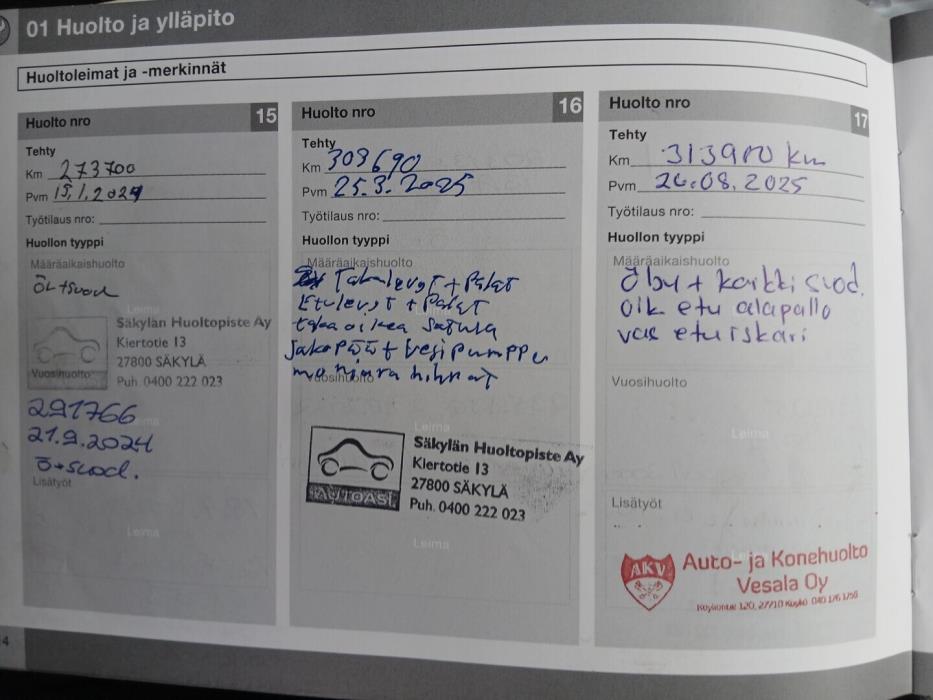 01 Huolto ja ylläpito
Huoltoleimat ja -merkinnät
Huolto nro 15
Tehty
Km 273700
Pvm 15.1.2024
Työtilaus nro:
Huollon tyyppi
Määräaikaishuolto
Öl+suod
Leima
Säkylän Huoltopiste Ay
Kiertotie 13
27800 SÄKYLÄ
Puh. 0400 222 023
Vuosihuolto
291766
21.9.2024
Leima
ö+suod.
Lisätyöt
Leima
Huolto nro 16
Tehty
Km 309690
Pvm 25.3.2025
Työtilaus nro:
Huollon tyyppi
Määräaikaishuolto
Takalevyt + Palat
Etulevyt + Palat
taka oikea Satula
Jakopää + Vesipumppu
Vuosihuolto
hihnat
Leima
AUTOASI
Säkylän Huoltopiste Ay
Kiertotie 13
27800 SÄKYLÄ
Puh. 0400 222 023
Leima
Huolto nro 17
Tehty
Km 313900 km
Pvm 26.08.2025
Työtilaus nro:
Huollon tyyppi
Määräaikaishuolto
Öljy + kaikki suod.
oik etu alapallo
vas etuiskari
Vuosihuolto
Leima
Lisätyöt
AKV
Auto- ja Konehuolto
Vesala Oy
4